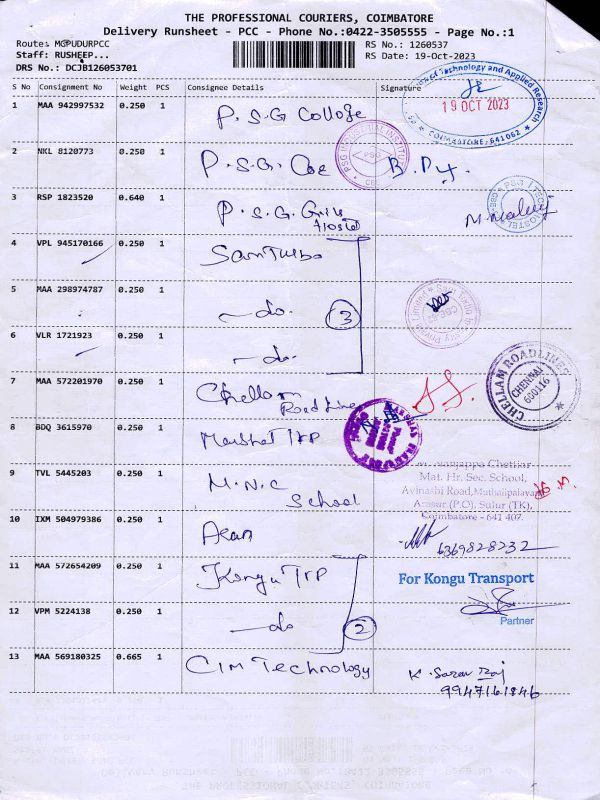 THE PROFESSIONAL COURIERS, COIMBATORE
Delivery Runsheet - PCC - Phone No.:0422-3505555 - Page No.:1
Route: MGPUDURPCC
Staff: RUSHEEP...
DRS No.: DCJB126053701
RS No.: 1260537
RS Date: 19-Oct-2023
S No Consignment No Weight PCS Consignee Details Signature
of Technology and Applied Research
19 OCT 2023
COIMBATORE-641062
1 MAA 942997532 0.250 1 P.S.G College
2 NKL 8120773 0.250 1 P.S.G. Coe
PSG INDUSTRIAL INSTITUTE
PSG
3 RSP 1823520 0.640 1 P.S.G. Girls
Hostel
PSG I TECH
HOSTEL
4 VPL 945170166 0.250 1 Sam Turbo
5 MAA 298974787 0.250 1 -do-
3
Sam Turbo Industry Private Limited
6 VLR 1721923 0.250 1 -do-
7 MAA 572201970 0.250 1 Chellam
Road Lines
CHELLAM ROADLINES
CHENNAI
600116
8 BDQ 3615970 0.250 1 TRP
9 TVL 5445203 0.250 1 M.N.C
School
Chettiar
Mat. Hr. Sec. School,
Avinashi Road, Muthalipalayam
(P.O), Sulur (TK),
Coimbatore - 641 407.
10 IXM 504979386 0.250 1
6369828232
11 MAA 572654209 0.250 1 Kongu TRP
For Kongu Transport
Partner
12 VPM 5224138 0.250 1 -do
2
13 MAA 569180325 0.665 1 CIM Technology
K. Sarav Raj
9947161846